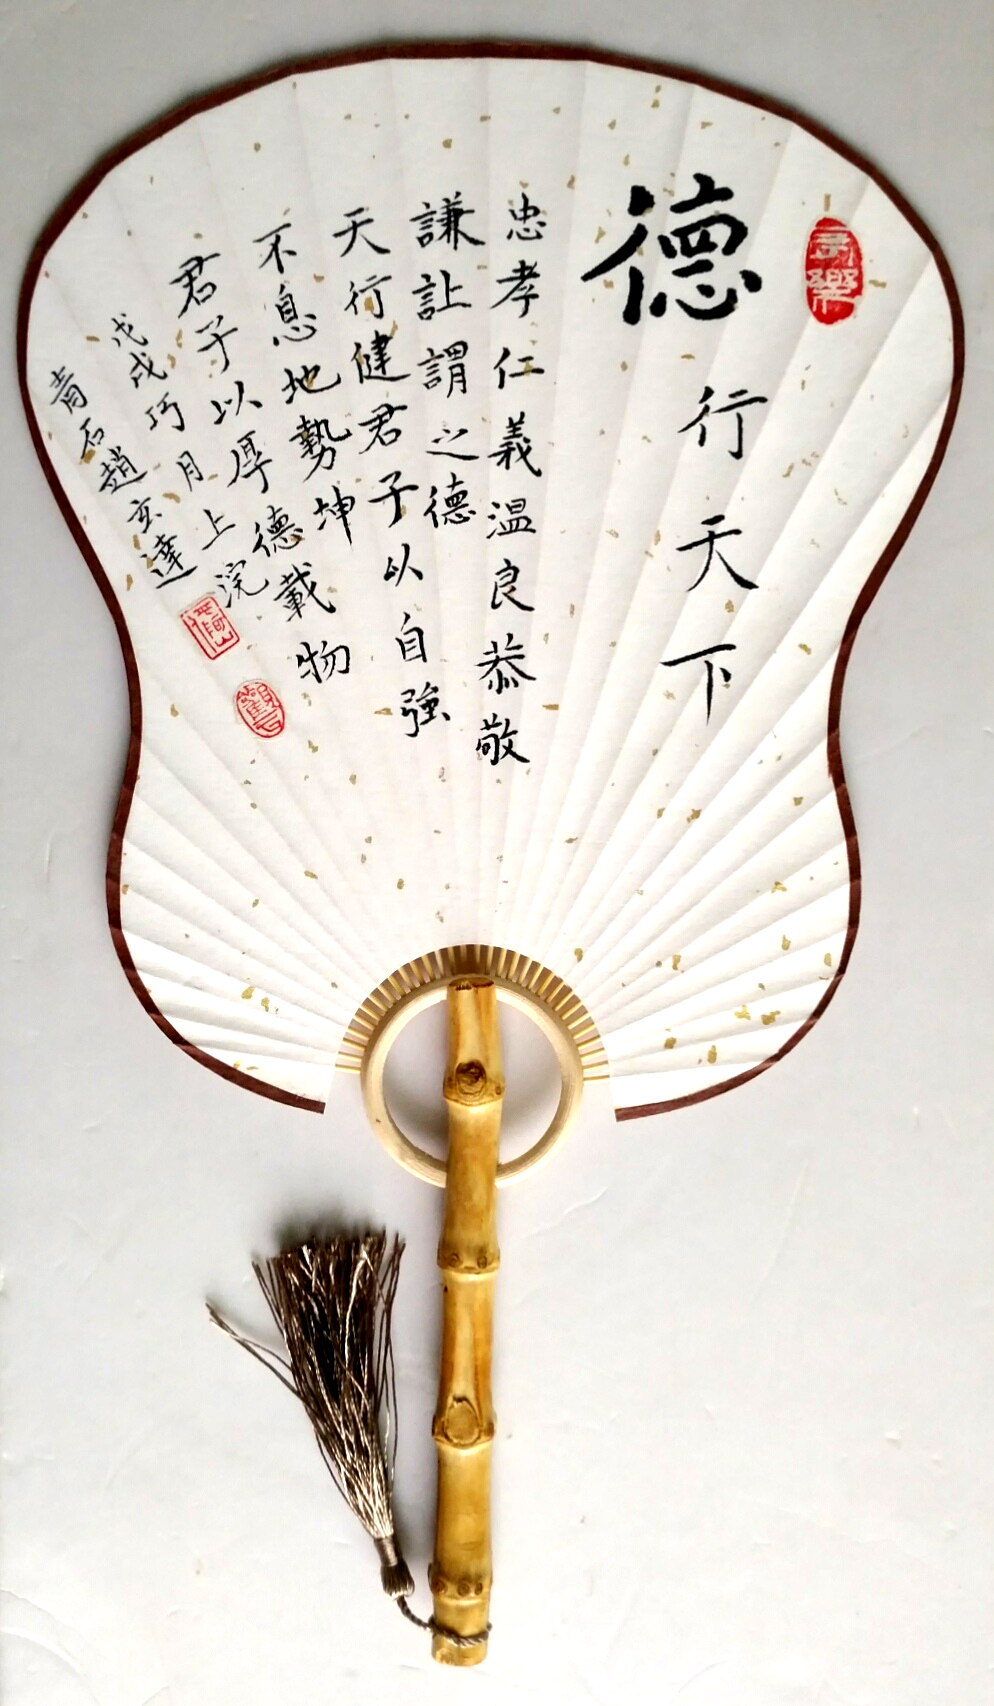 德行天下
忠孝仁義温良恭敬
謙让謂之德
天行健君子以自強
不息地勢坤
君子以厚德載物
戊戌巧月上浣
青石趙玄達